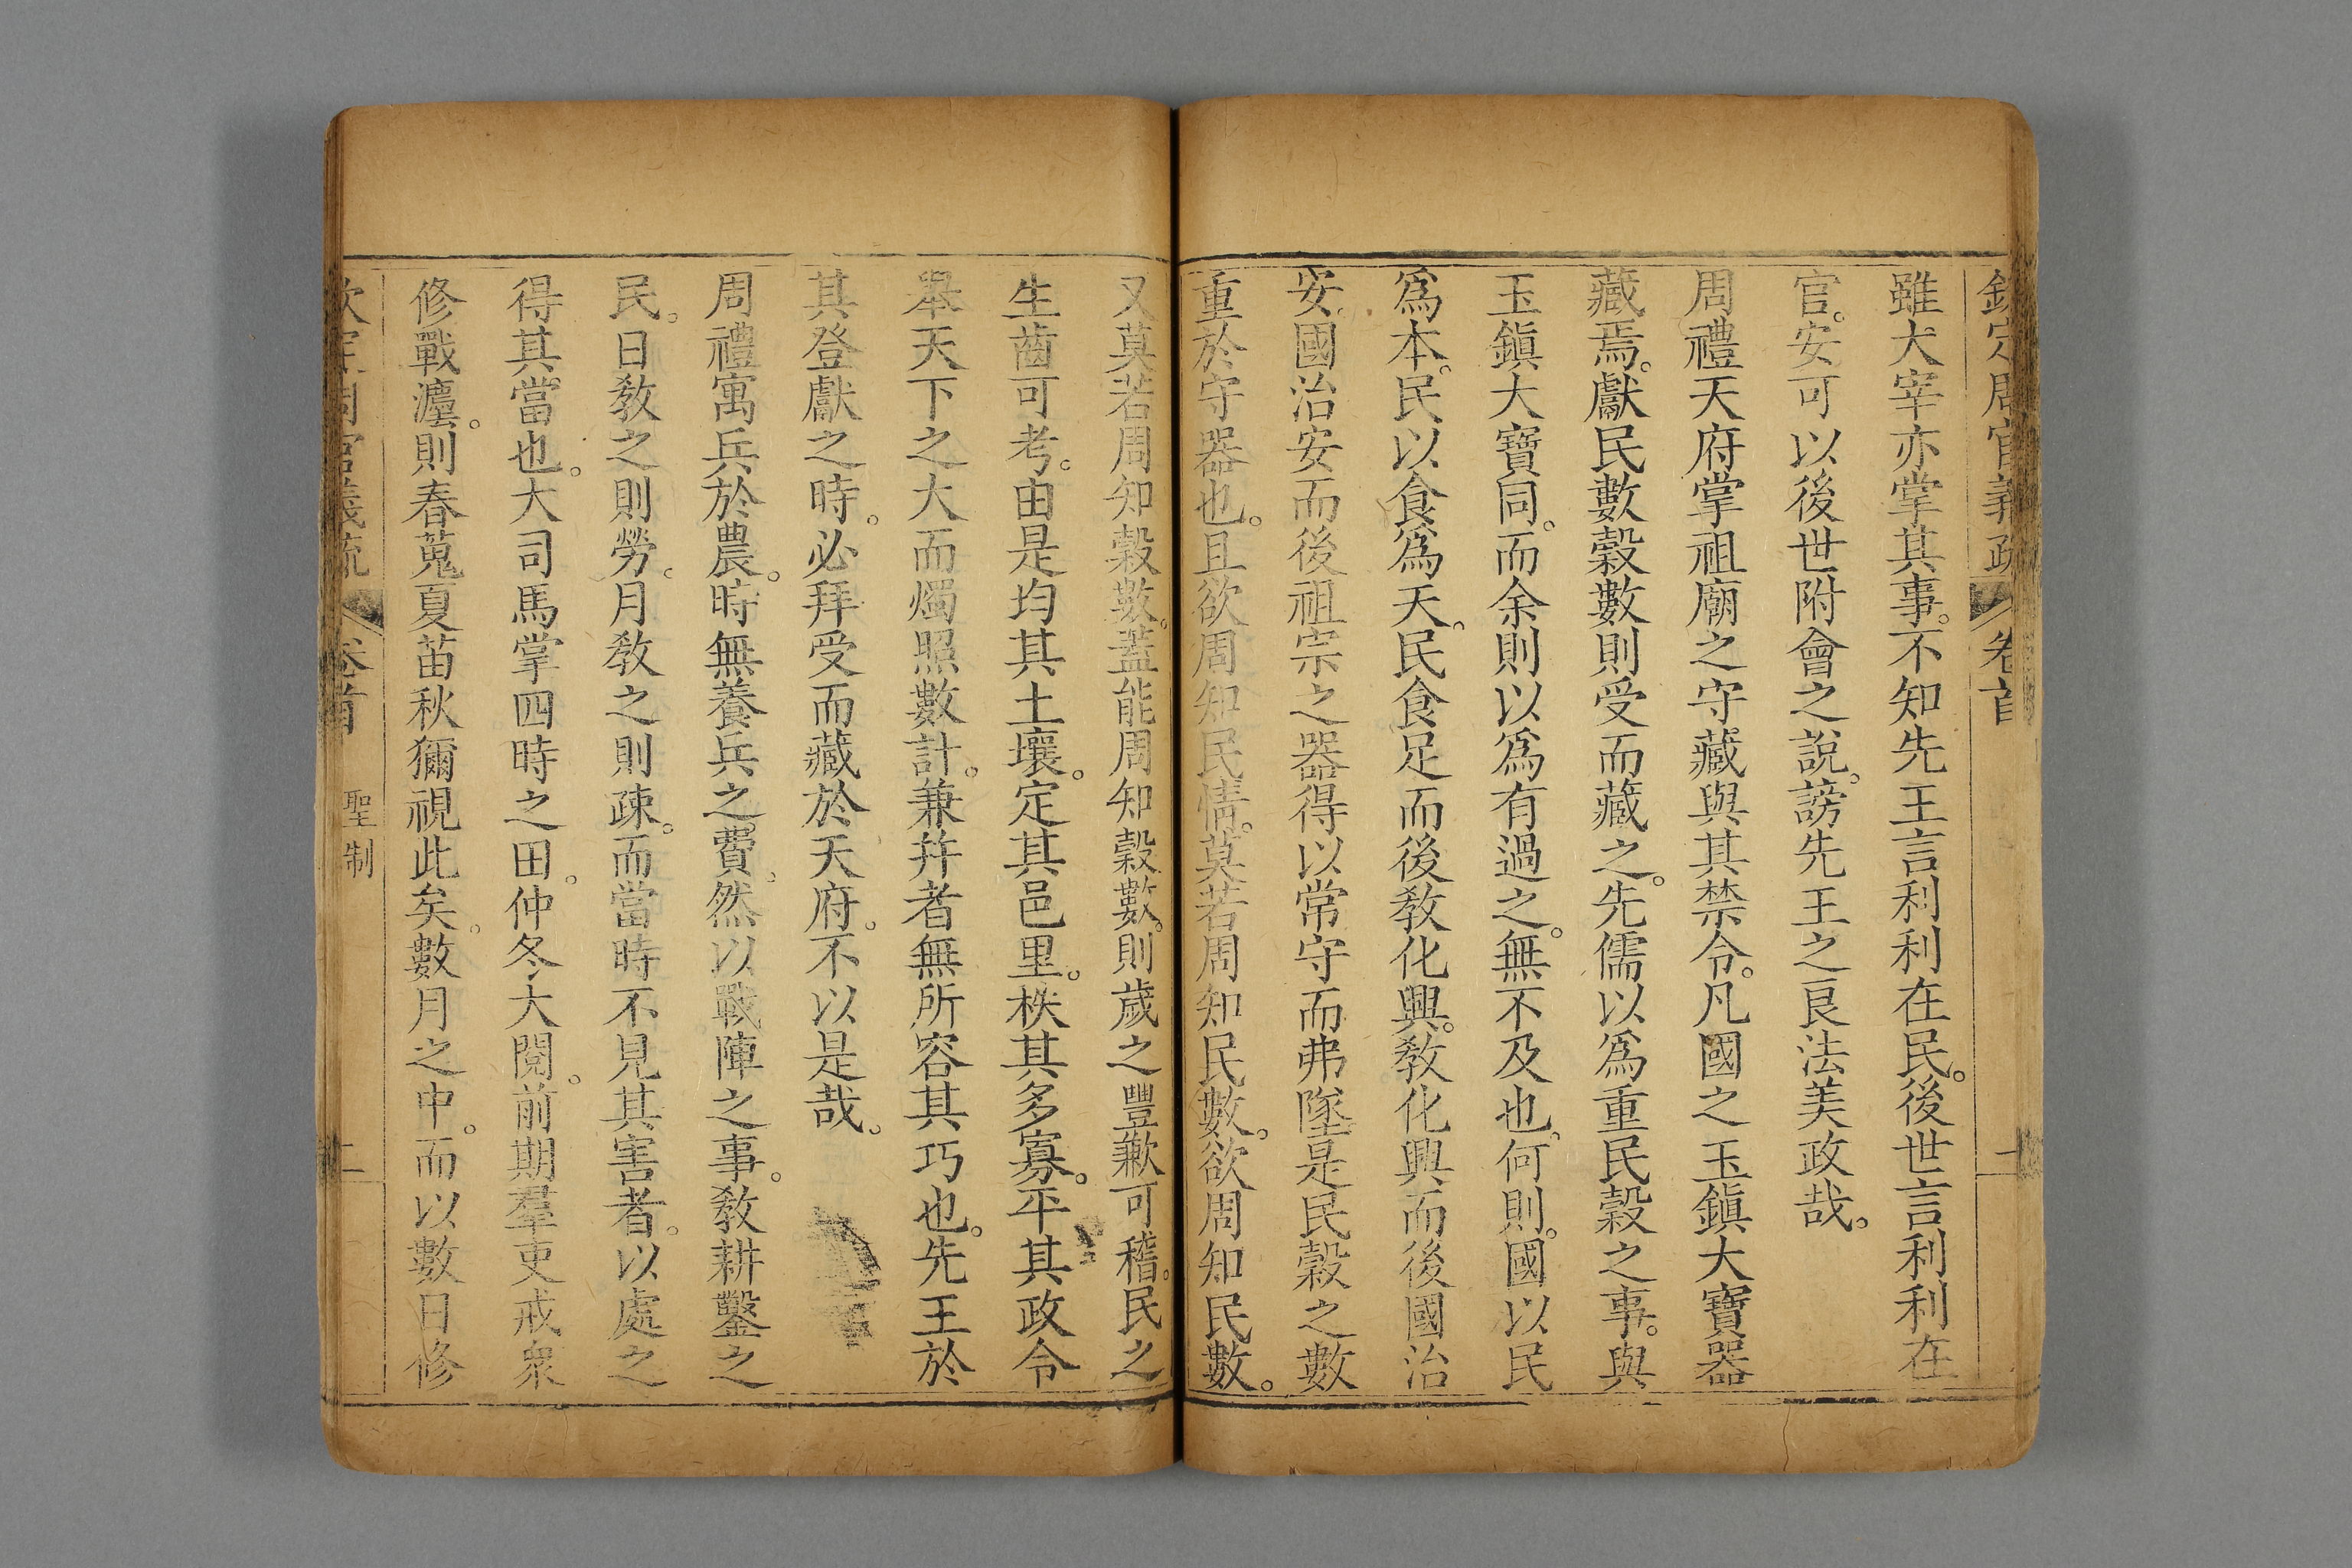 欽定周官義疏 卷首
雖大宰亦掌其事。不知先王言利利在民。後世言利利在
官。安可以後世附會之說。謗先王之良法美政哉。
周禮天府掌祖廟之守藏與其禁令。凡國之玉鎭大寶器
藏焉。獻民數穀數則受而藏之。先儒以爲重民穀之事。與
玉鎭大寶同。而余則以爲有過之。無不及也。何則。國以民
爲本。民以食爲天。民食足而後敎化興。敎化興而後國治
安。國治安而後祖宗之器得以常守而弗墜是民穀之數
重於守器也。且欲周知民情。莫若周知民數。欲周知民數。
又莫若周知穀數。蓋能周知穀數。則歲之豐歉可稽。民之
生齒可考。由是均其土壤。定其邑里。秩其多寡。平其政令
舉天下之大而燭照數計。兼并者無所容其巧也。先王於
其登獻之時。必拜受而藏於天府。不以是哉。
周禮寓兵於農。時無養兵之費。然以戰陣之事。敎耕鑿之
民。日敎之則勞。月敎之則疎。而當時不見其害者。以處之
得其當也。大司馬掌四時之田。仲冬大閱。前期羣吏戒衆
修戰灋。則春蒐夏苗秋獮視此矣。數月之中。而以數日修
欽定周官義疏 卷首 聖制 二